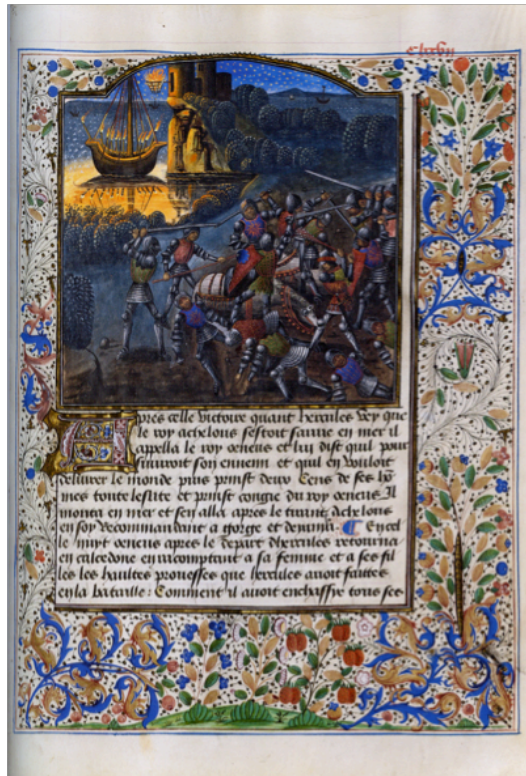 clxvii
Apres celle victoire quant hercules vey que
le roy achelous sestoit sauue en mer il
appella le roy oeneus et luy dist quil pour
suiuroit son ennemi et quil en vouloit
deliurer le monde puis prinst deux Cens de ses hō
mes toute leslite et prinst congie du roy oeneus. Il
monta en mer et sen alla apres le tirant achelous
en soy recommandant a gorge et deyanira. ¶ En cel
le nuyt oeneus apres le depart dhercules retourna
en calcedone en racomptant a sa femme et a ses fil
les les haultes prouesses que hercules auoit faittes
en la bataille: Comment il auoit enchassie tous ses